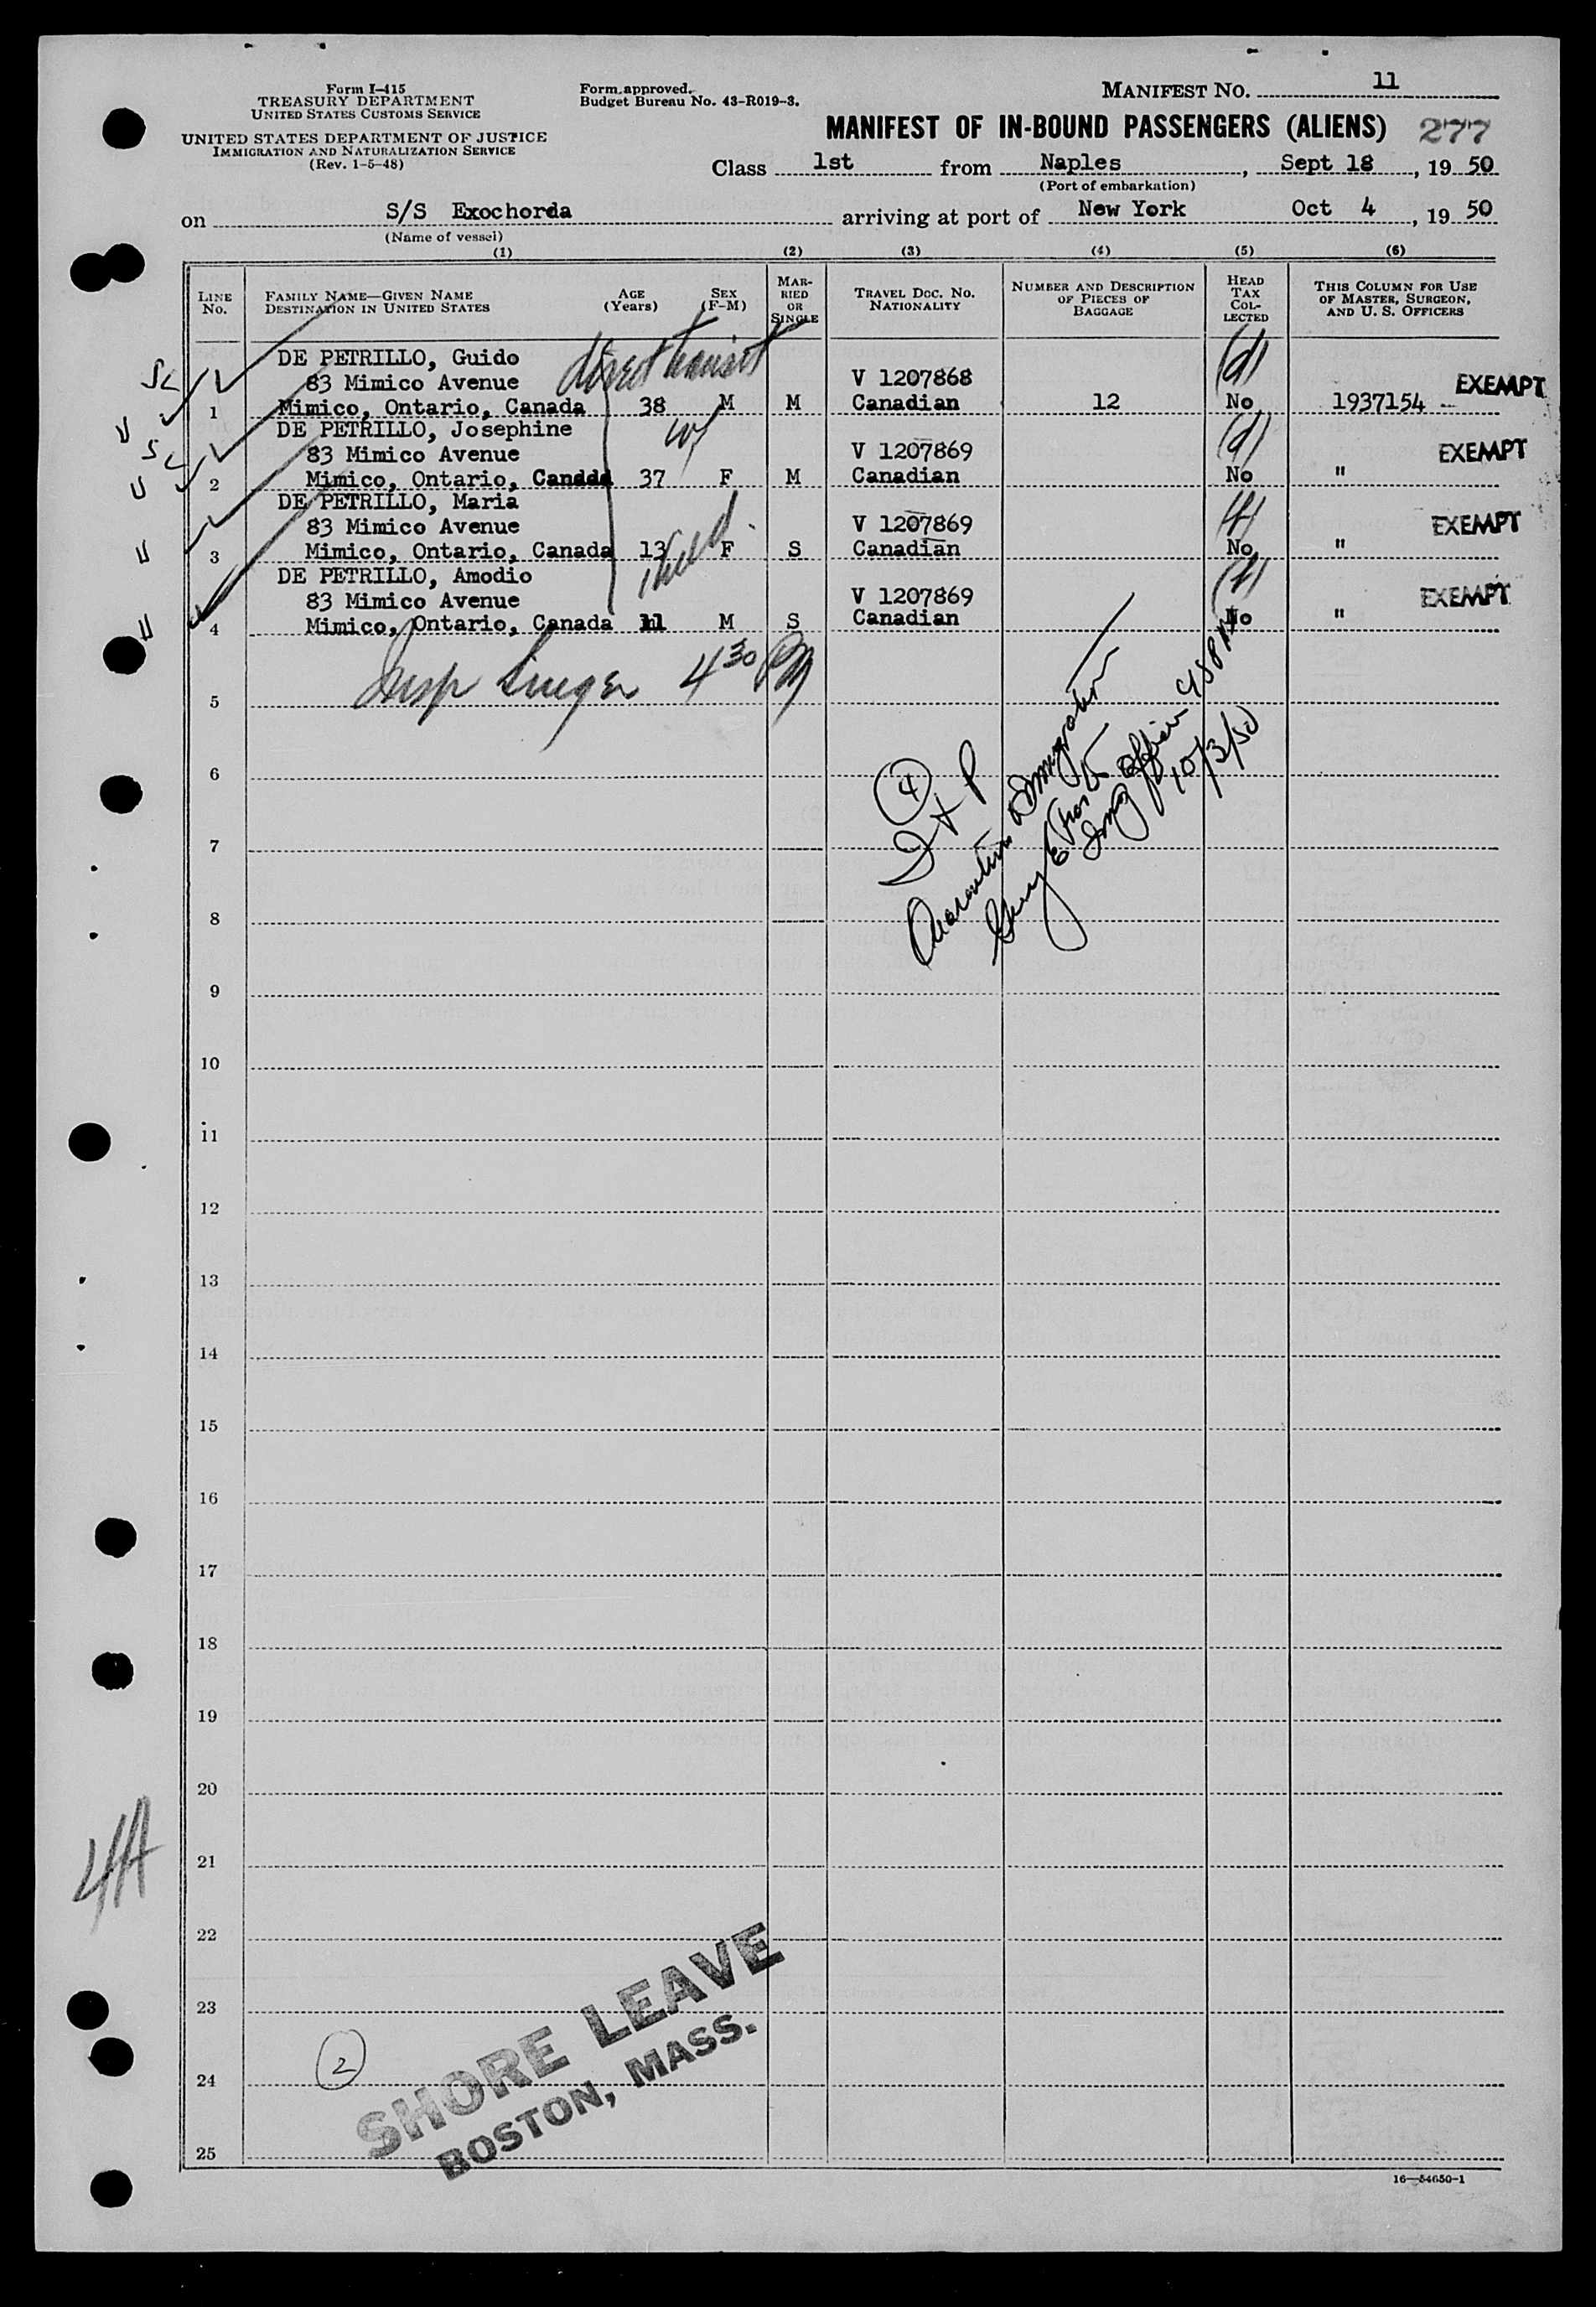 Form I-415
TREASURY DEPARTMENT
UNITED STATES CUSTOMS SERVICE
UNITED STATES DEPARTMENT OF JUSTICE
IMMIGRATION AND NATURALIZATION SERVICE
(Rev. 1-5-48)
Form approved.
Budget Bureau No. 43-R019-3.
MANIFEST NO. 11
MANIFEST OF IN-BOUND PASSENGERS (ALIENS) 277
Class 1st from Naples, Sept 18, 19 50
(Port of embarkation)
on S/S Exochorda arriving at port of New York Oct 4, 19 50
(Name of vessel)
(1) (2) (3) (4) (5) (6)
LINE NO. FAMILY NAME—GIVEN NAME DESTINATION IN UNITED STATES AGE (Years) SEX (F-M) MARRIED OR SINGLE TRAVEL DOC. NO. NATIONALITY NUMBER AND DESCRIPTION OF PIECES OF BAGGAGE HEAD TAX COLLECTED THIS COLUMN FOR USE OF MASTER, SURGEON, AND U. S. OFFICERS
DE PETRILLO, Guido direct transit (d)
83 Mimico Avenue V 1207868 EXEMPT
1 Mimico, Ontario, Canada 38 M M Canadian 12 No 1937154
DE PETRILLO, Josephine wf (d)
83 Mimico Avenue V 1207869 EXEMPT
2 Mimico, Ontario, Canada 37 F M Canadian No "
DE PETRILLO, Maria
83 Mimico Avenue V 1207869 EXEMPT
3 Mimico, Ontario, Canada 13 F S Canadian No "
DE PETRILLO, Amodio
83 Mimico Avenue V 1207869 EXEMPT
4 Mimico, Ontario, Canada 11 M S Canadian No "
Insp Singer 4 30 PM
5
6
4
7
8
Quarantine & Immigration
10/3/50
9
10
11
12
13
14
15
16
17
18
19
20
21
4A
22
23
2
24
25
SHORE LEAVE
BOSTON, MASS.
16—54650-1